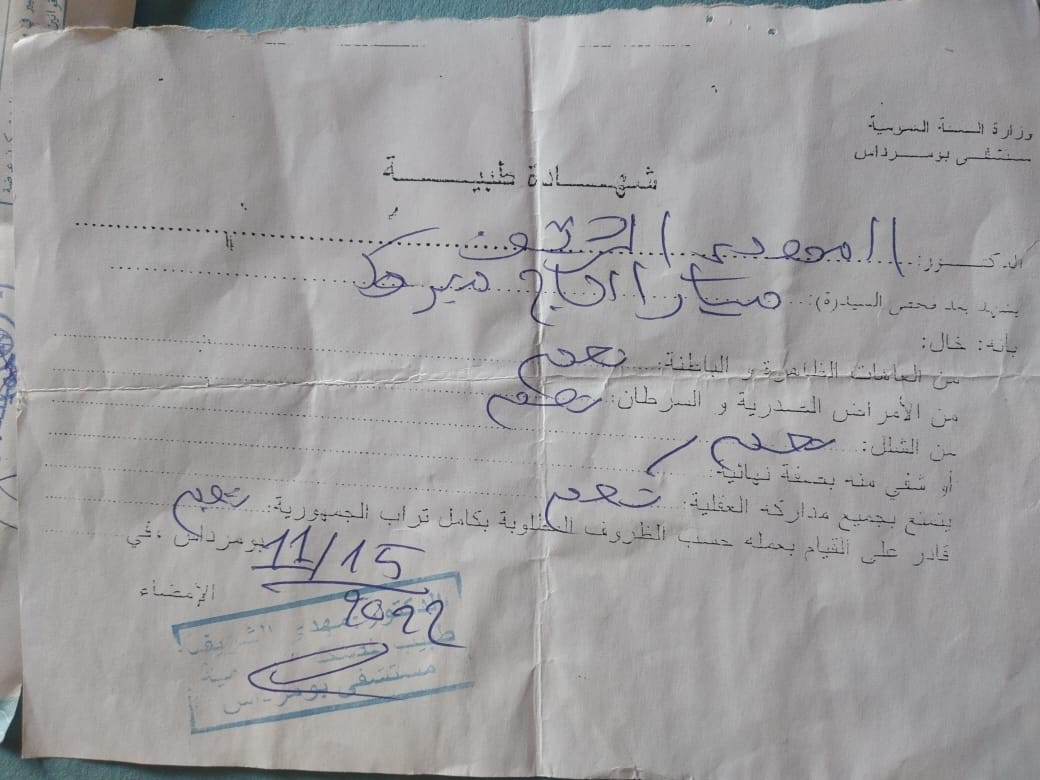 وزارة الصحة العمومية
مستشفى بومرداس
شهادة طبية
الدكتور: المهدي الشريف
يشهد بعد فحص السيد(ة): الحاج مبروك
بأنه: خال:
من العاهات الظاهرة و الباطنة: نعم
من الأمراض الصدرية و السرطان: نعم
من الشلل: نعم
أو شفي منه بصفة نهائية:
يتمتع بجميع مداركه العقلية: نعم
قادر على القيام بعمله حسب الظروف المطلوبة بكامل تراب الجمهورية: نعم
بومرداس ،في 11/15
2022
الإمضاء
الدكتور مهدي الشريف
طبيب
مستشفى بومرداس